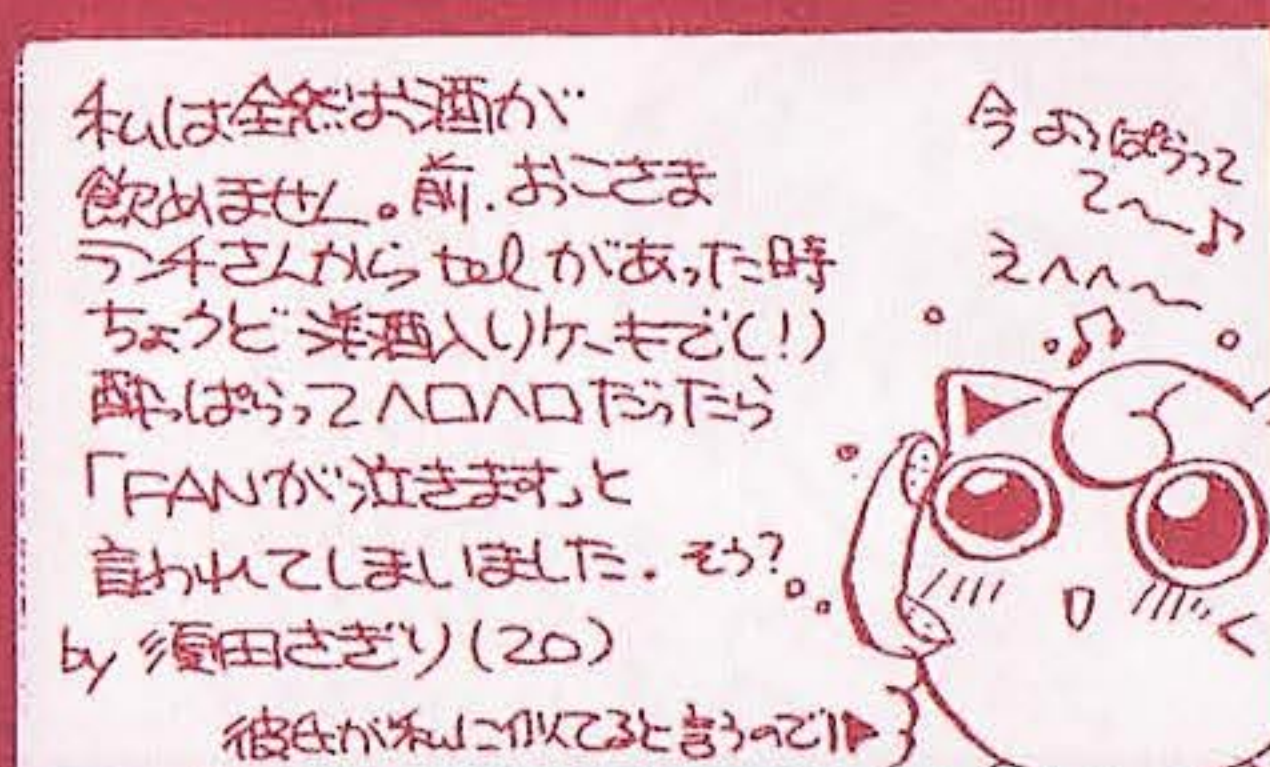 私は全然お酒が
飲めません。前、おこさま
ランチさんから telがあった時
ちょうど洋酒入りケーキで(!)
酔っぱらってヘロヘロだったら
「FANが泣きます」と
言われてしまいました。そう?
by 須田さぎり(20)
彼氏が私に似てると言うので▶
今よっぱらって
て〜♪
えへへ〜